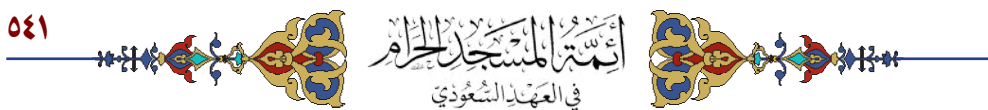 ٥٤١
أَئِمَّةُ المَسْجِدِ الحَرَامِ
فِي العَهْدِ السُّعُودِيّ